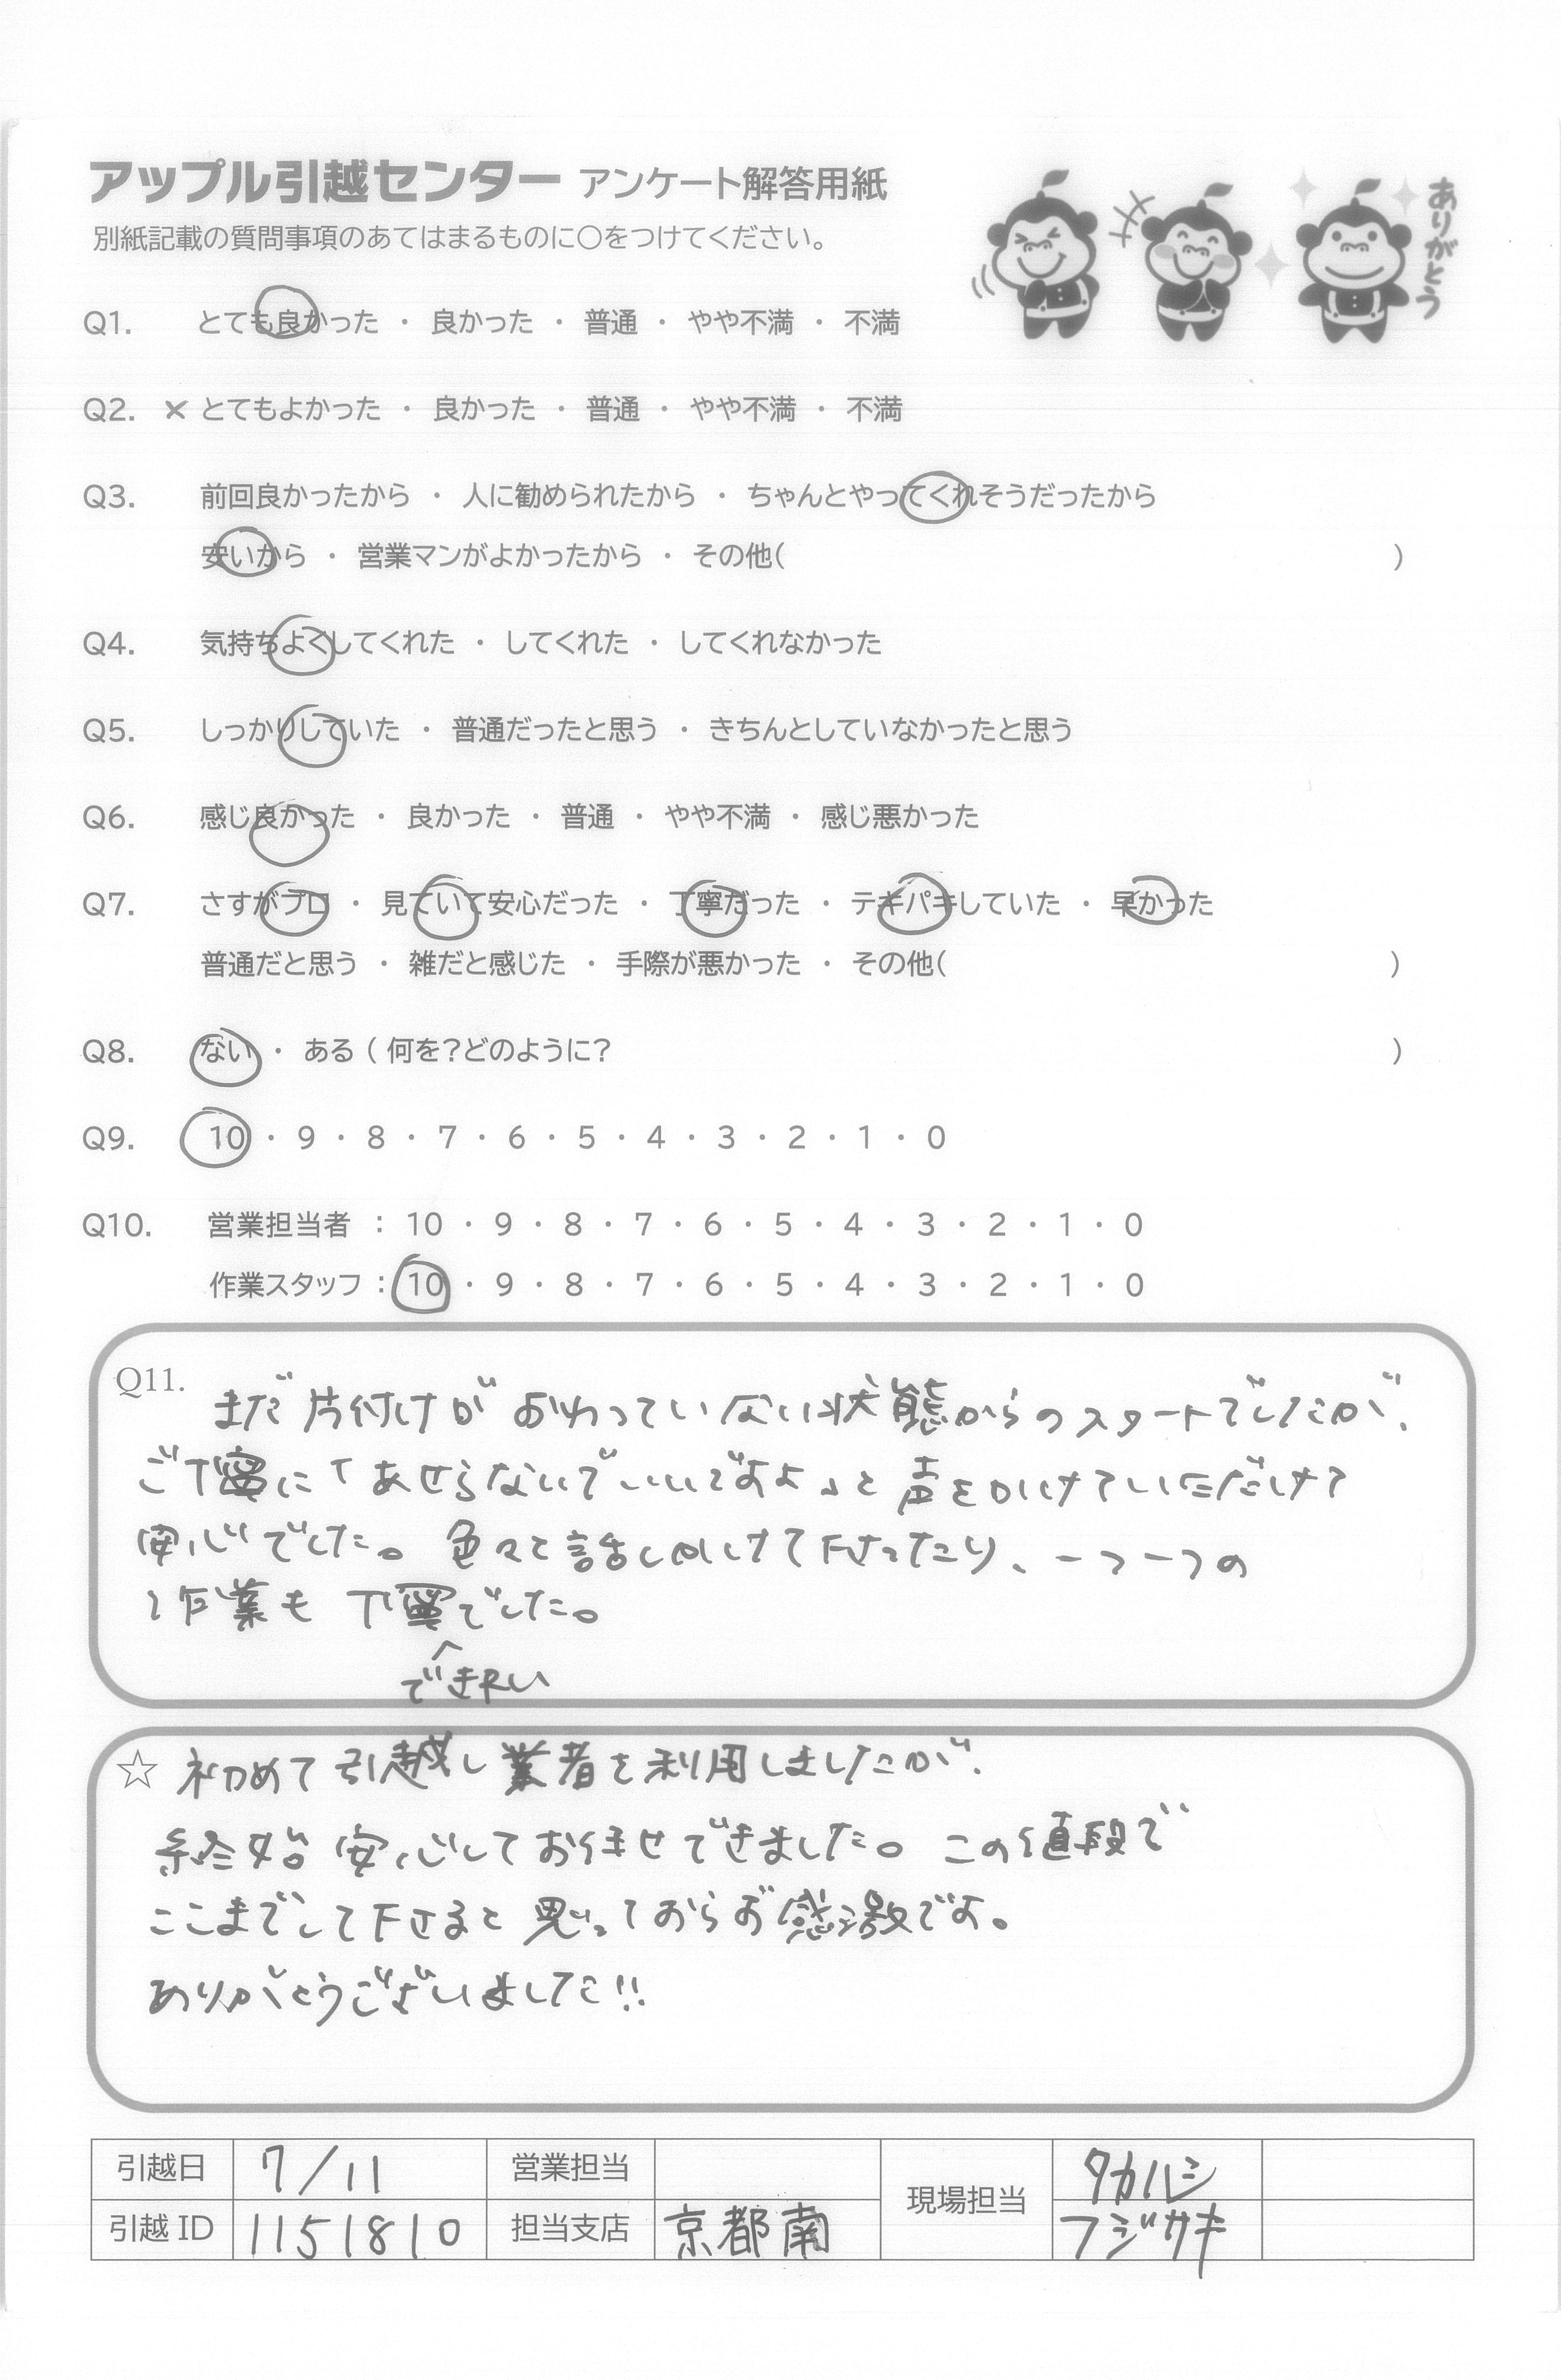 アップル引越センター アンケート解答用紙
ありがとう
別紙記載の質問事項のあてはまるものに○をつけてください。
Q1. とても良かった ・ 良かった ・ 普通 ・ やや不満 ・ 不満
Q2. × とてもよかった ・ 良かった ・ 普通 ・ やや不満 ・ 不満
Q3. 前回良かったから ・ 人に勧められたから ・ ちゃんとやってくれそうだったから
安いから ・ 営業マンがよかったから ・ その他( )
Q4. 気持ちよくしてくれた ・ してくれた ・ してくれなかった
Q5. しっかりしていた ・ 普通だったと思う ・ きちんとしていなかったと思う
Q6. 感じ良かった ・ 良かった ・ 普通 ・ やや不満 ・ 感じ悪かった
Q7. さすがプロ ・ 見ていて安心だった ・ 丁寧だった ・ テキパキしていた ・ 早かった
普通だと思う ・ 雑だと感じた ・ 手際が悪かった ・ その他( )
Q8. ない ・ ある ( 何を?どのように? )
Q9. 10 ・ 9 ・ 8 ・ 7 ・ 6 ・ 5 ・ 4 ・ 3 ・ 2 ・ 1 ・ 0
Q10. 営業担当者 : 10 ・ 9 ・ 8 ・ 7 ・ 6 ・ 5 ・ 4 ・ 3 ・ 2 ・ 1 ・ 0
作業スタッフ : 10 ・ 9 ・ 8 ・ 7 ・ 6 ・ 5 ・ 4 ・ 3 ・ 2 ・ 1 ・ 0
Q11. まだ片付けがおわっていない状態からのスタートでしたが、
ご丁寧に「あせらないでいいですよ」と声をかけていただけて
安心でした。色々と話しかけて下さったり、一つ一つの
作業も丁寧でした。
できれい
☆ 初めて引越し業者を利用しましたが、
終始安心してお任せできました。この値段で
ここまでして下さると思っておらず感激です。
ありがとうございました!!
引越日 7/11 営業担当 現場担当 タカハシ
引越 ID 1151810 担当支店 京都南 フジサキ